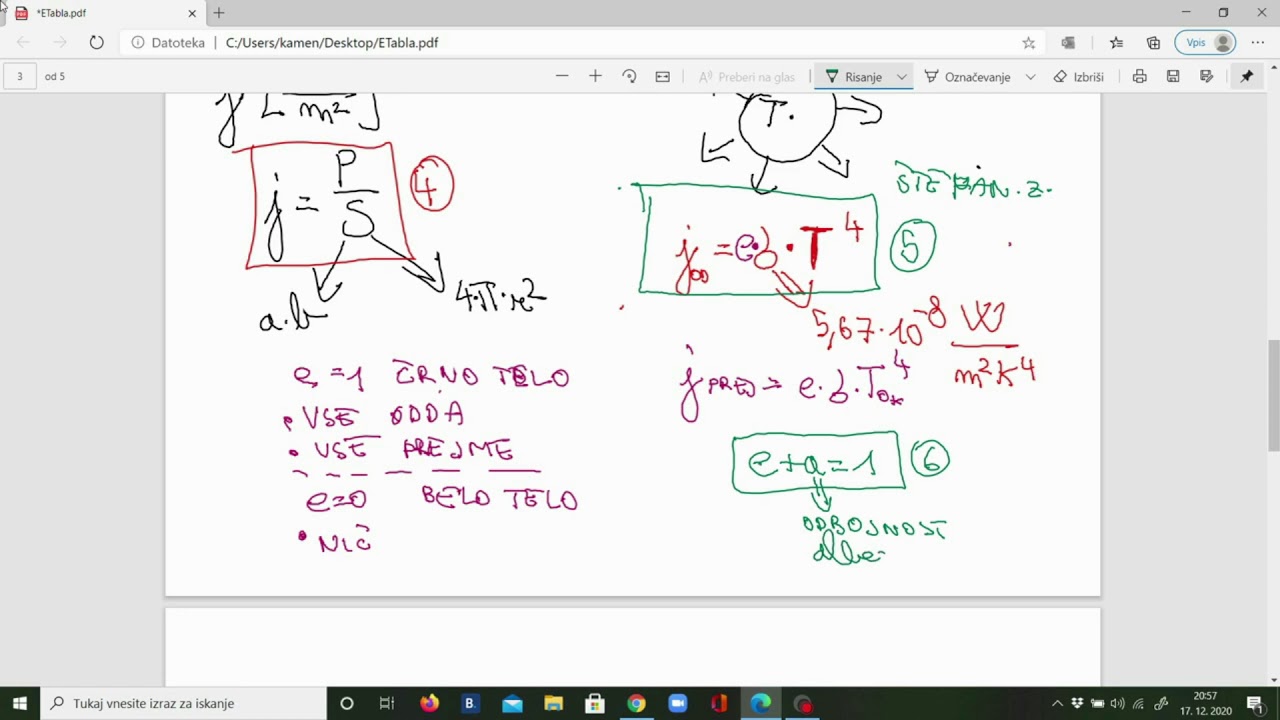 *ETabla.pdf
Datoteka C:/Users/kamen/Desktop/ETabla.pdf Vpis
3 od 5 Preberi na glas Risanje Označevanje Izbriši
j [ m² ]
j = P/S 4
a·b 4·π·r²
e = 1 ČRNO TELO
• VSE ODDA
• VSE PREJME
e=0 BELO TELO
• NIČ
T
STEFAN. Z.
j = e·σ·T⁴ 5
5,67·10⁻⁸ W/m²K⁴
j PREJ = e·σ·T⁴
e+a=1 6
ODBOJNOST
albe
Tukaj vnesite izraz za iskanje
20:57
17. 12. 2020